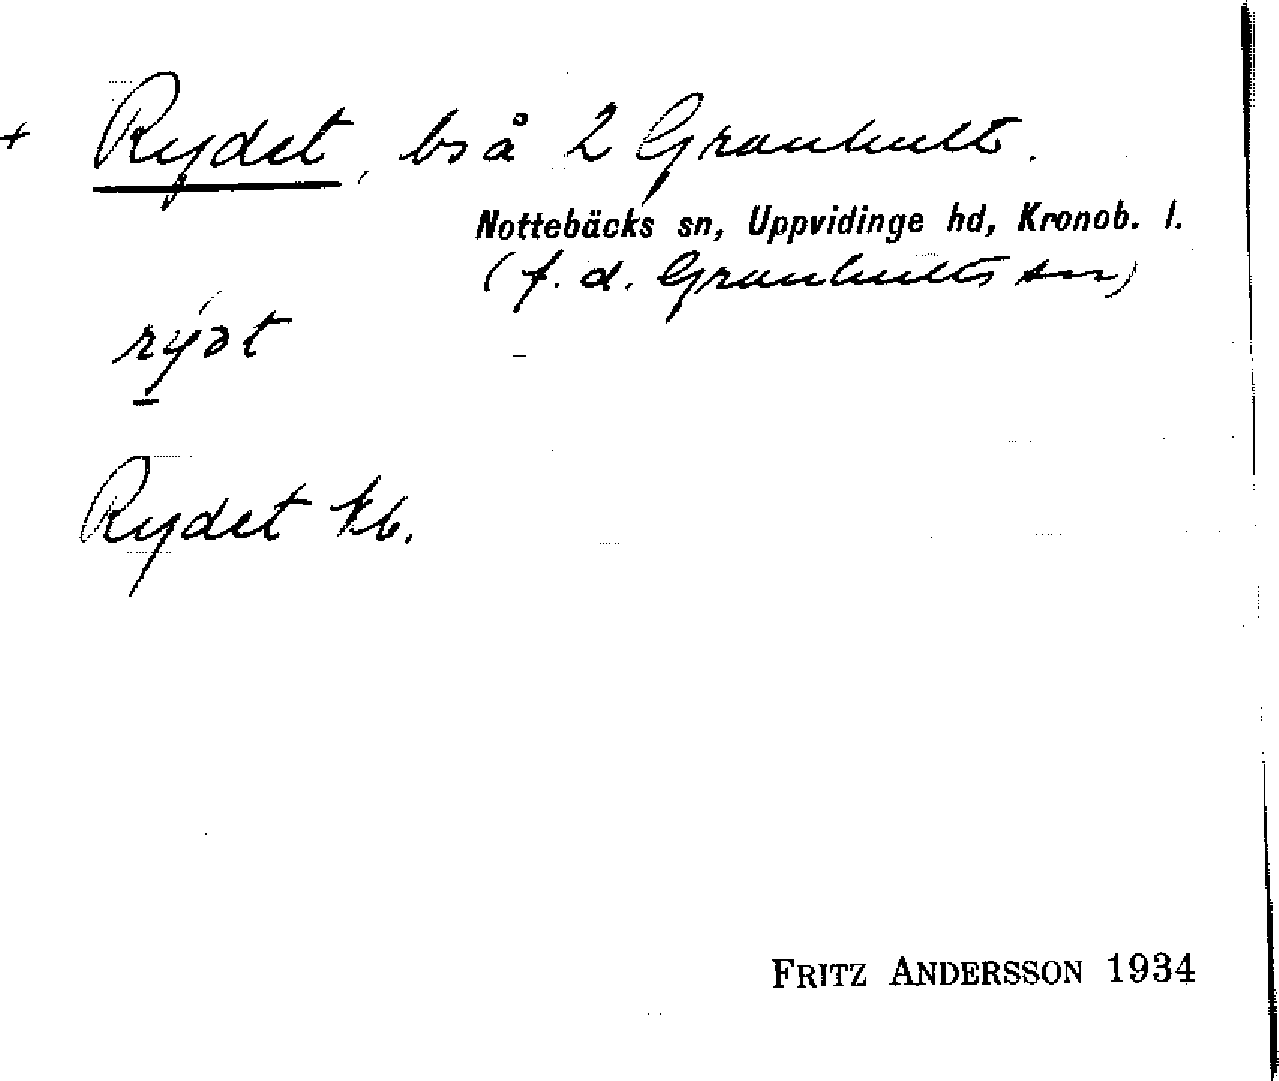 + Rydet, bs å 2 Granhult.
Nottebäcks sn, Uppvidinge hd, Kronob. l.
(f. d. Granhults sn)
rýdt
Rydet kb.
FRITZ ANDERSSON 1934